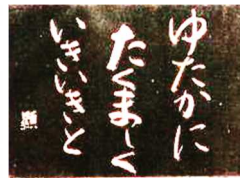 ゆたかに
たくましく
いきいきと